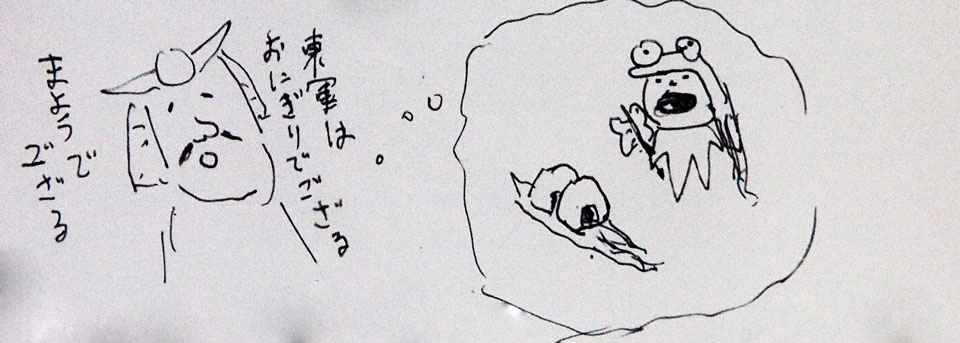 東軍は
おにぎりでござる
まようで
ござる